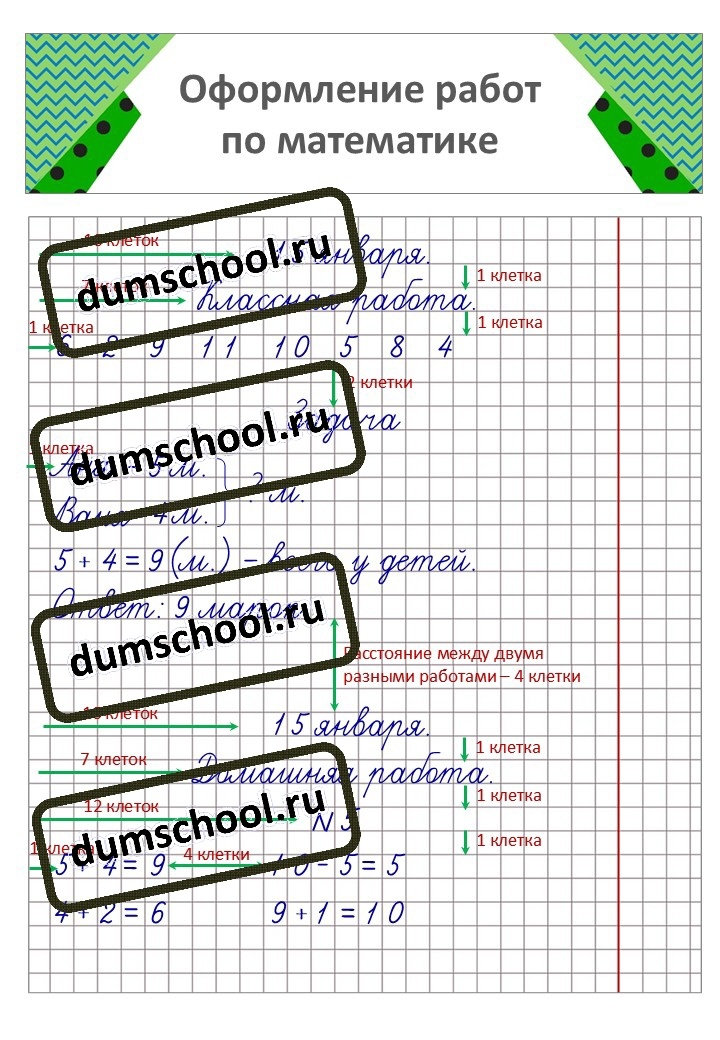 Оформление работ
по математике
10 клеток
15 января.
1 клетка
7 клеток
Классная работа.
1 клетка
1 клетка
6 2 9 11 10 5 8 4
2 клетки
Задача
клетка
5 м.
? м.
Ваня - 4 м.
5 + 4 = 9 (м.) - всего у детей.
Ответ: 9 марок.
Расстояние между двумя
разными работами – 4 клетки
10 клеток
15 января.
1 клетка
7 клеток
Домашняя работа.
1 клетка
12 клеток
N 5
1 клетка
1 клетка
4 клетки
5 + 4 = 9 10 - 5 = 5
4 + 2 = 6 9 + 1 = 10
dumschool.ru
dumschool.ru
dumschool.ru
dumschool.ru